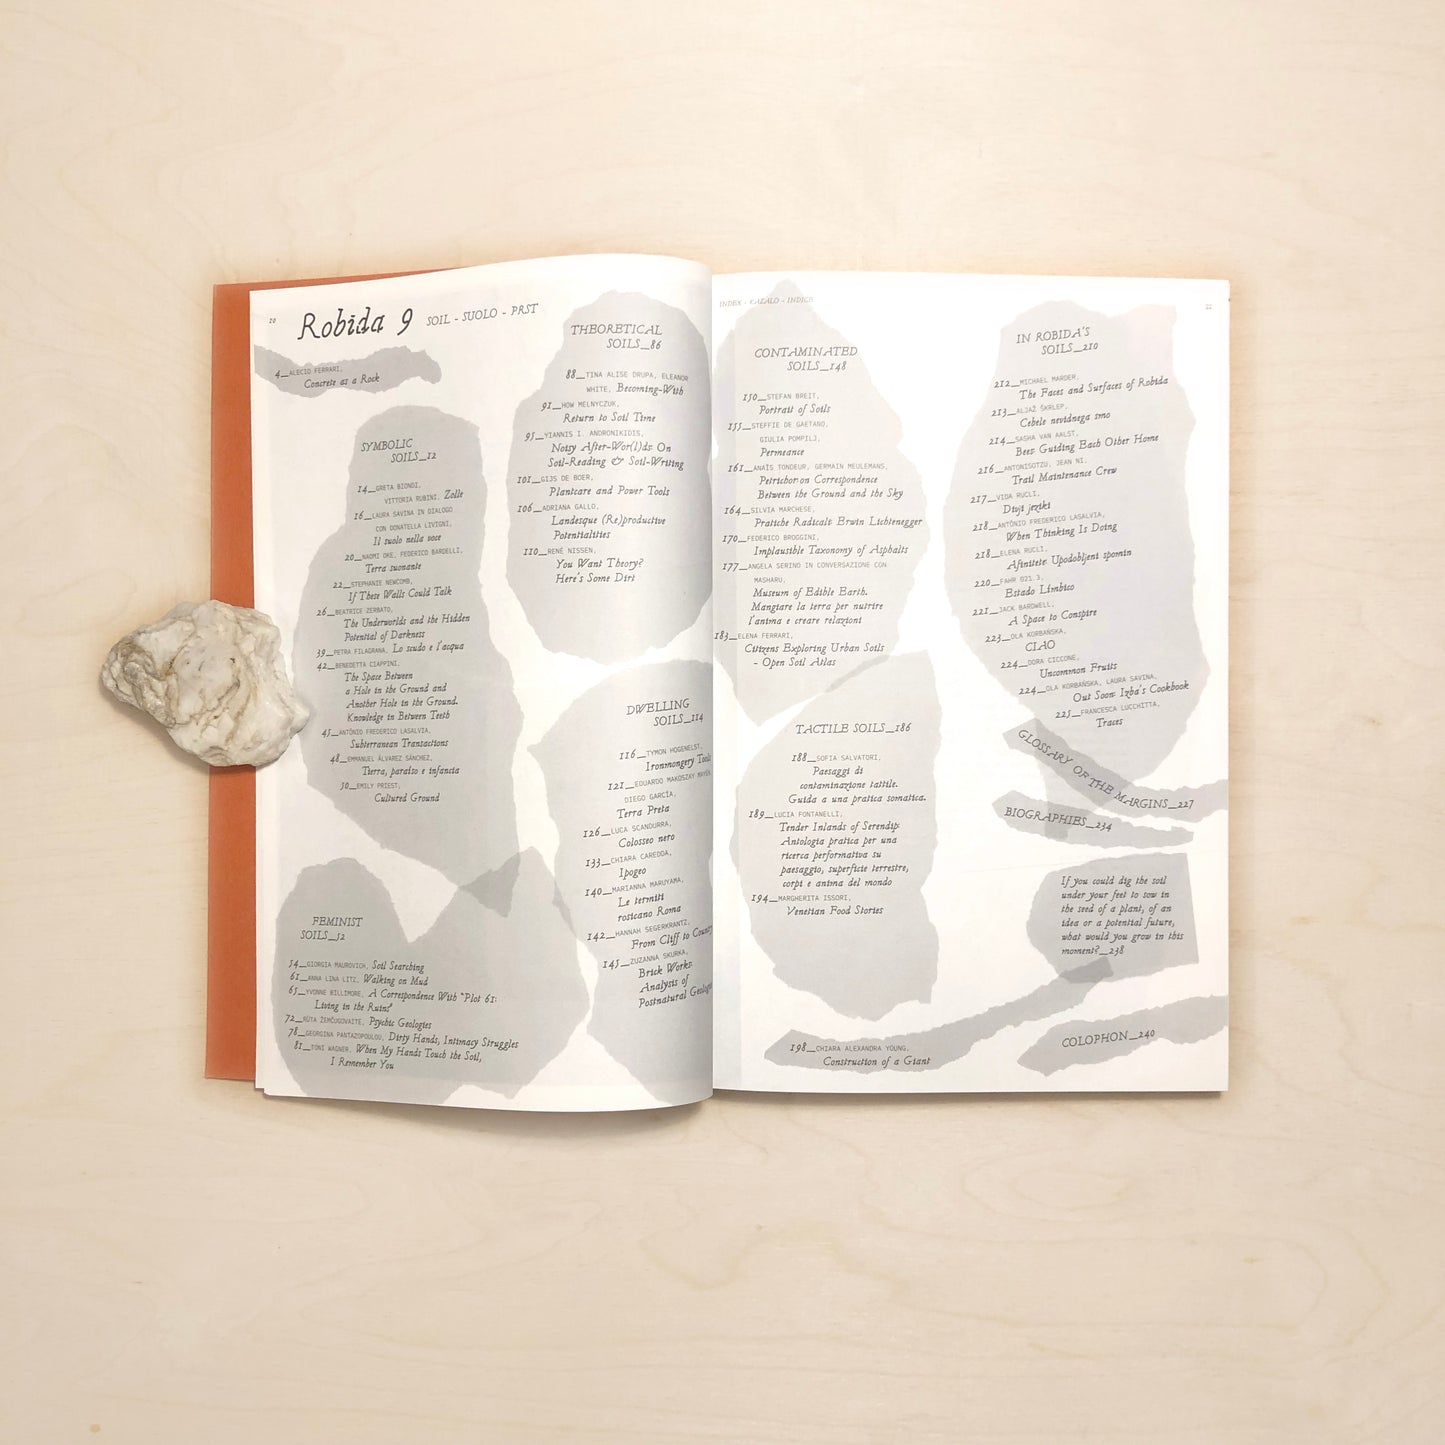 20
Robida 9 SOIL - SUOLO - PRST
4_ALECIO FERRARI,
Concrete as a Rock
SYMBOLIC
SOILS_12
14_GRETA BIONDI,
VITTORIA RUBINI, Zolle
16_LAURA SAVINA IN DIALOGO
CON DONATELLA LIVIGNI,
Il suolo nella voce
20_NAOMI OKE, FEDERICO BARDELLI,
Terra suonante
22_STEPHANIE NEWCOMB,
If These Walls Could Talk
26_BEATRICE ZERBATO,
The Underworlds and the Hidden
Potential of Darkness
39_PETRA FILAGRANA, Lo scudo e l'acqua
42_BENEDETTA CIAPPINI,
The Space Between
a Hole in the Ground and
Another Hole in the Ground.
Knowledge in Between Teeth
45_ANTÔNIO FREDERICO LASALVIA,
Subterranean Transactions
48_EMMANUEL ÁLVAREZ SÁNCHEZ,
Tierra, paraíso e infancia
50_EMILY PRIEST,
Cultured Ground
FEMINIST
SOILS_52
54_GIORGIA MAUROVICH, Soil Searching
61_ANNA LINA LITZ, Walking on Mud
65_YVONNE BILLIMORE, A Correspondence With "Plot 61:
Living in the Ruins"
72_RŪTA ŽEMČUGOVAITE, Psychic Geologies
78_GEORGINA PANTAZOPOULOU, Dirty Hands, Intimacy Struggles
81_TONI WAGNER, When My Hands Touch the Soil,
I Remember You
THEORETICAL
SOILS_86
88_TINA ALISE DRUPA, ELEANOR
WHITE, Becoming-With
91_HOW MELNYCZUK,
Return to Soil Time
95_YIANNIS I. ANDRONIKIDIS,
Noisy After-Wor(l)ds: On
Soil-Reading & Soil-Writing
101_GIJS DE BOER,
Plantcare and Power Tools
106_ADRIANA GALLO,
Landesque (Re)productive
Potentialities
110_RENÉ NISSEN,
You Want Theory?
Here's Some Dirt
DWELLING
SOILS_114
116_TYMON HOGENELST,
Ironmongery Tools
121_EDUARDO MAKOSZAY MAYÉN,
DIEGO GARCÍA,
Terra Preta
126_LUCA SCANDURRA,
Colosseo nero
133_CHIARA CAREDDA,
Ipogeo
140_MARIANNA MARUYAMA,
Le termiti
rosicano Roma
142_HANNAH SEGERKRANTZ,
From Cliff to Country
145_ZUZANNA SKURKA,
Brick Works:
Analysis of
Postnatural
INDEX - KAZALO - INDICE
CONTAMINATED
SOILS_148
150_STEFAN BREIT,
Portrait of Soils
155_STEFFIE DE GAETANO,
GIULIA POMPILJ,
Permeance
161_ANAÏS TONDEUR, GERMAIN MEULEMANS,
Petrichor: on Correspondence
Between the Ground and the Sky
164_SILVIA MARCHESE,
Pratiche Radicali: Erwin Lichtenegger
170_FEDERICO BROGGINI,
Implausible Taxonomy of Asphalts
177_ANGELA SERINO IN CONVERSAZIONE CON
MASHARU,
Museum of Edible Earth.
Mangiare la terra per nutrire
l'anima e creare relazioni
183_ELENA FERRARI,
Citizens Exploring Urban Soils
- Open Soil Atlas
TACTILE SOILS_186
188_SOFIA SALVATORI,
Paesaggi di
contaminazione tattile.
Guida a una pratica somatica.
189_LUCIA FONTANELLI,
Tender Inlands of Serendip:
Antologia pratica per una
ricerca performativa su
paesaggio, superficie terrestre,
corpi e anima del mondo
194_MARGHERITA ISSORI,
Venetian Food Stories
198_CHIARA ALEXANDRA YOUNG,
Construction of a Giant
IN ROBIDA'S
SOILS_210
212_MICHAEL MARDER,
The Faces and Surfaces of Robida
213_ALJAŽ ŠKRLEP,
Čebele nevidnega smo
214_SASHA VAN AALST,
Bees: Guiding Each Other Home
216_ANTONISOTZU, JEAN NI,
Trail Maintenance Crew
217_VIDA RUCLI,
Divji jeziki
218_ANTÔNIO FREDERICO LASALVIA,
When Thinking Is Doing
218_ELENA RUCLI,
Afinitete: Upodobljeni spomin
220_FAHR 021.3,
Estado Límbico
221_JACK BARDWELL,
A Space to Conspire
223_OLA KORBAŃSKA,
CIAO
224_DORA CICCONE,
Uncommon Fruits
224_OLA KORBAŃSKA, LAURA SAVINA,
Out Soon: Izba's Cookbook
225_FRANCESCA LUCCHITTA,
Traces
GLOSSARY OF THE MARGINS_227
BIOGRAPHIES_234
If you could dig the soil
under your feet to sow in
the seed of a plant, of an
idea or a potential future,
what would you grow in this
moment?_238
COLOPHON_240